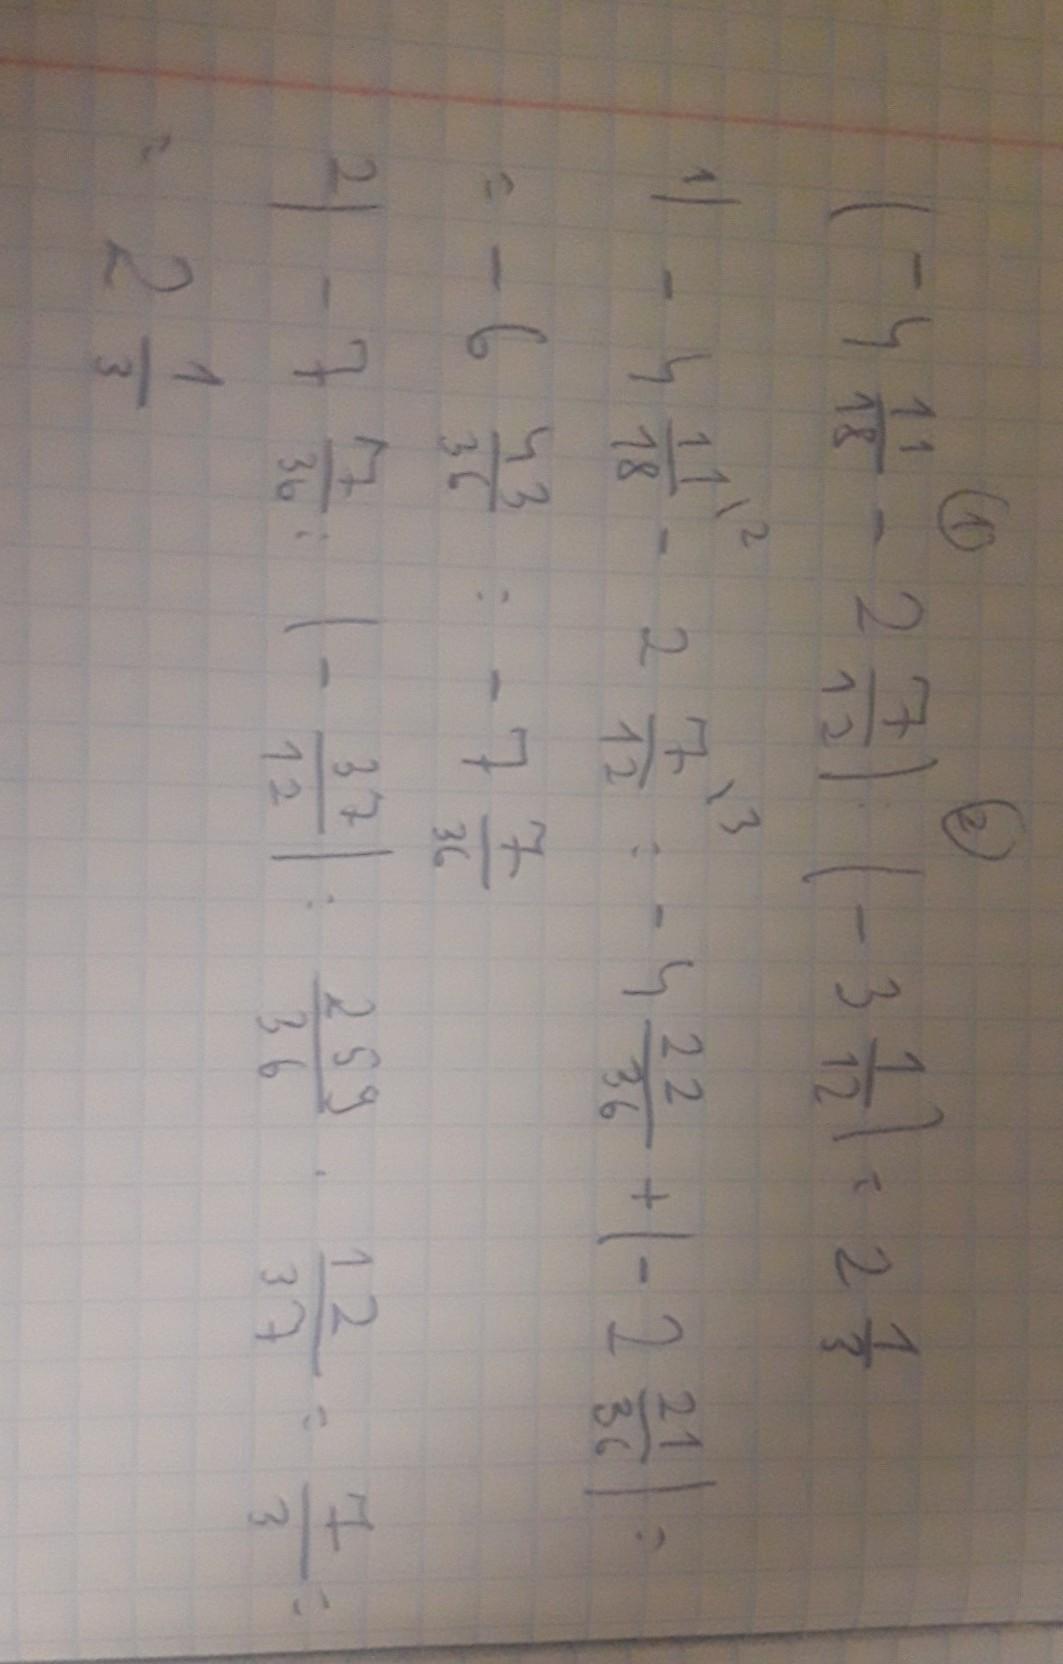 ① ②
(-4 11/18 - 2 7/12) : (-3 1/12) = 2 1/3
1) -4 11/18 \2 - 2 7/12 \3 = -4 22/36 + (-2 21/36) =
= -6 43/36 = -7 7/36
2) -7 7/36 : (-37/12) = 259/36 · 12/37 = 7/3 =
= 2 1/3